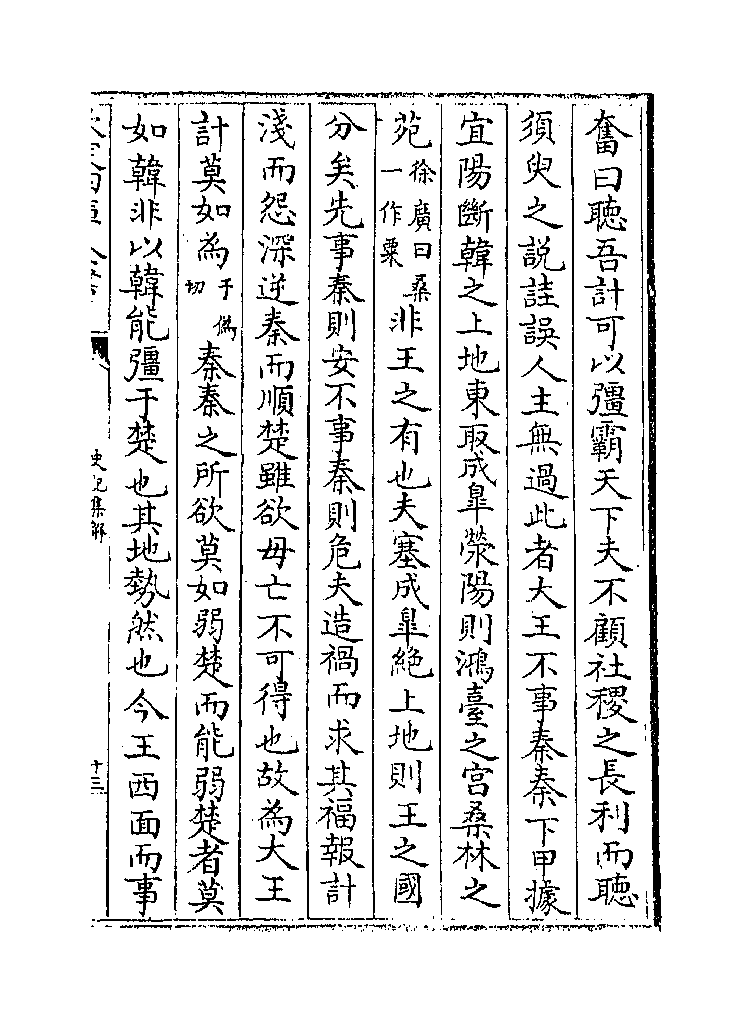 奮曰聽吾計可以彊霸天下夫不顧社稷之長利而聽
須臾之説詿誤人主無過此者大王不事秦秦下甲據
宜陽斷韓之上地東取成臯滎陽則鴻臺之宫桑林之
苑徐廣曰桑一作栗非王之有也夫塞成臯絶上地則王之國
分矣先事秦則安不事秦則危夫造禍而求其福報計
淺而怨深逆秦而順楚雖欲毋亡不可得也故為大王
計莫如為于偽切秦秦之所欲莫如弱楚而能弱楚者莫
如韓非以韓能彊于楚也其地勢然也今王西面而事
史記集解
十三